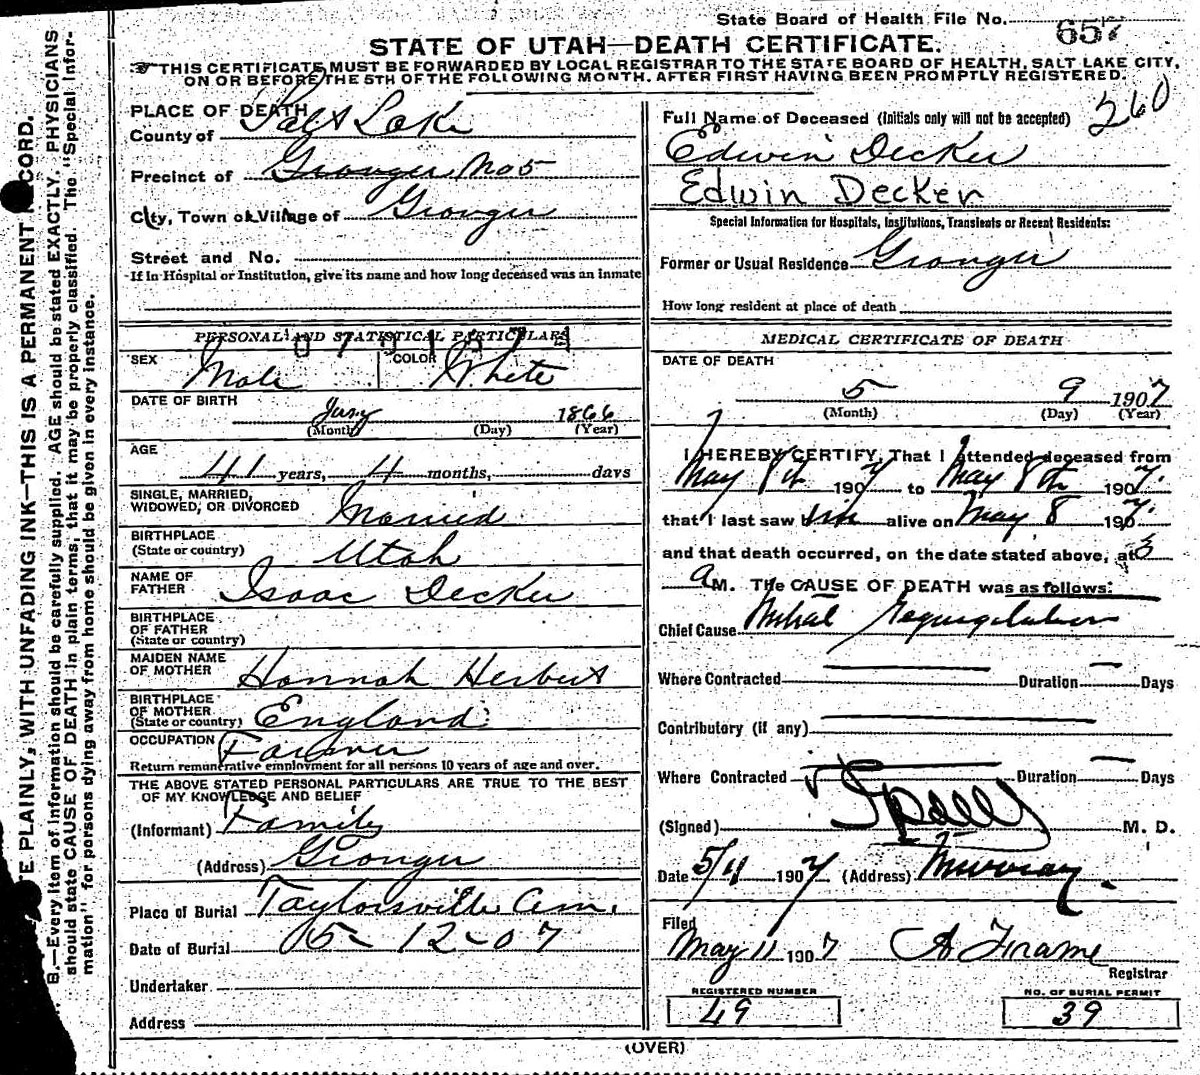 State Board of Health File No. 657
STATE OF UTAH—DEATH CERTIFICATE.
THIS CERTIFICATE MUST BE FORWARDED BY LOCAL REGISTRAR TO THE STATE BOARD OF HEALTH, SALT LAKE CITY,
ON OR BEFORE THE 5TH OF THE FOLLOWING MONTH. AFTER FIRST HAVING BEEN PROMPTLY REGISTERED.
PLACE OF DEATH
County of Salt Lake
Precinct of Granger No 5
City, Town or Village of Granger
Street and No.
If in Hospital or Institution, give its name and how long deceased was an inmate
PERSONAL AND STATISTICAL PARTICULARS
SEX Male COLOR White
DATE OF BIRTH Jany 1866
(Month) (Day) (Year)
AGE 41 years, 4 months, days
SINGLE, MARRIED,
WIDOWED, OR DIVORCED Married
BIRTHPLACE
(State or country) Utah
NAME OF
FATHER Isaac Decker
BIRTHPLACE
OF FATHER
(State or country)
MAIDEN NAME
OF MOTHER Hannah Herbert
BIRTHPLACE
OF MOTHER
(State or country) England
OCCUPATION Farmer
Return remunerative employment for all persons 10 years of age and over.
THE ABOVE STATED PERSONAL PARTICULARS ARE TRUE TO THE BEST
OF MY KNOWLEDGE AND BELIEF
(Informant) Family
(Address) Granger
Place of Burial Taylorsville Cem.
Date of Burial 5-12-07
Undertaker
Address
260
Full Name of Deceased (Initials only will not be accepted)
Edwin Decker
Edwin Decker
Special Information for Hospitals, Institutions, Transients or Recent Residents:
Former or Usual Residence Granger
How long resident at place of death
MEDICAL CERTIFICATE OF DEATH
DATE OF DEATH
5 9 1907
(Month) (Day) (Year)
I HEREBY CERTIFY, That I attended deceased from
May 8th 1907 to May 8th 1907.
that I last saw him alive on May 8 1907.
and that death occurred, on the date stated above, at 3
a M. The CAUSE OF DEATH was as follows:
Chief Cause Mitral Regurgitation
Where Contracted Duration Days
Contributory (if any)
Where Contracted Duration Days
(Signed) M. D.
Date 5/11 1907 (Address) Murray.
Filed
May 11 1907
Registrar
REGISTERED NUMBER
49
NO. OF BURIAL PERMIT
39
(OVER)
PLAINLY, WITH UNFADING INK—THIS IS A PERMANENT RECORD.
B.—Every item of information should be carefully supplied. AGE should be stated EXACTLY. PHYSICIANS
should state CAUSE OF DEATH in plain terms, that it may be properly classified. The "Special Infor-
mation" for persons dying away from home should be given in every instance.